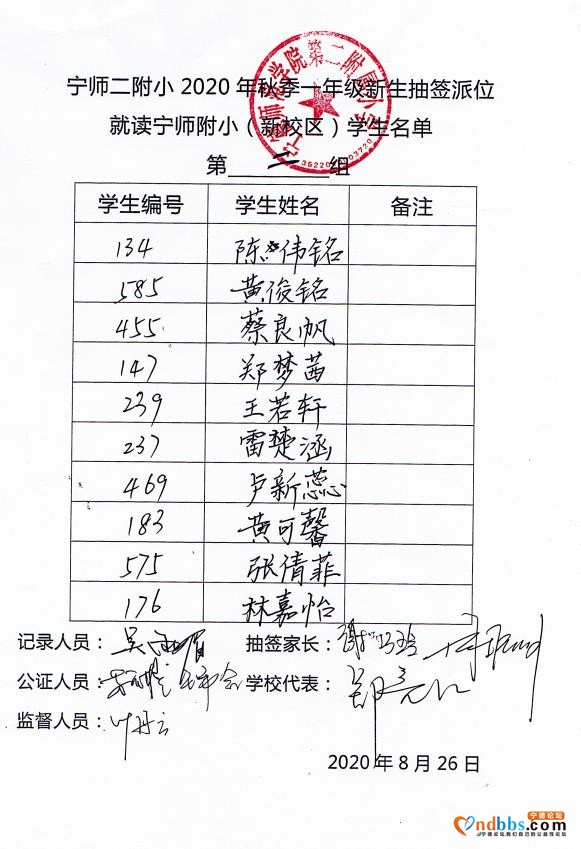 宁师二附小 2020 年秋季一年级新生抽签派位
就读宁师附小（新校区）学生名单
第 二 组
学生编号 学生姓名 备注
134 陈伟铭
585 黄俊铭
455 蔡良帆
147 郑梦茜
239 王若轩
237 雷楚涵
469 卢新蕊
183 黄可馨
575 张倩菲
176 林嘉怡
记录人员： 抽签家长：
公证人员： 学校代表：
监督人员： 叶丹云
2020 年 8 月 26 日
宁德论坛
ndbbs.com